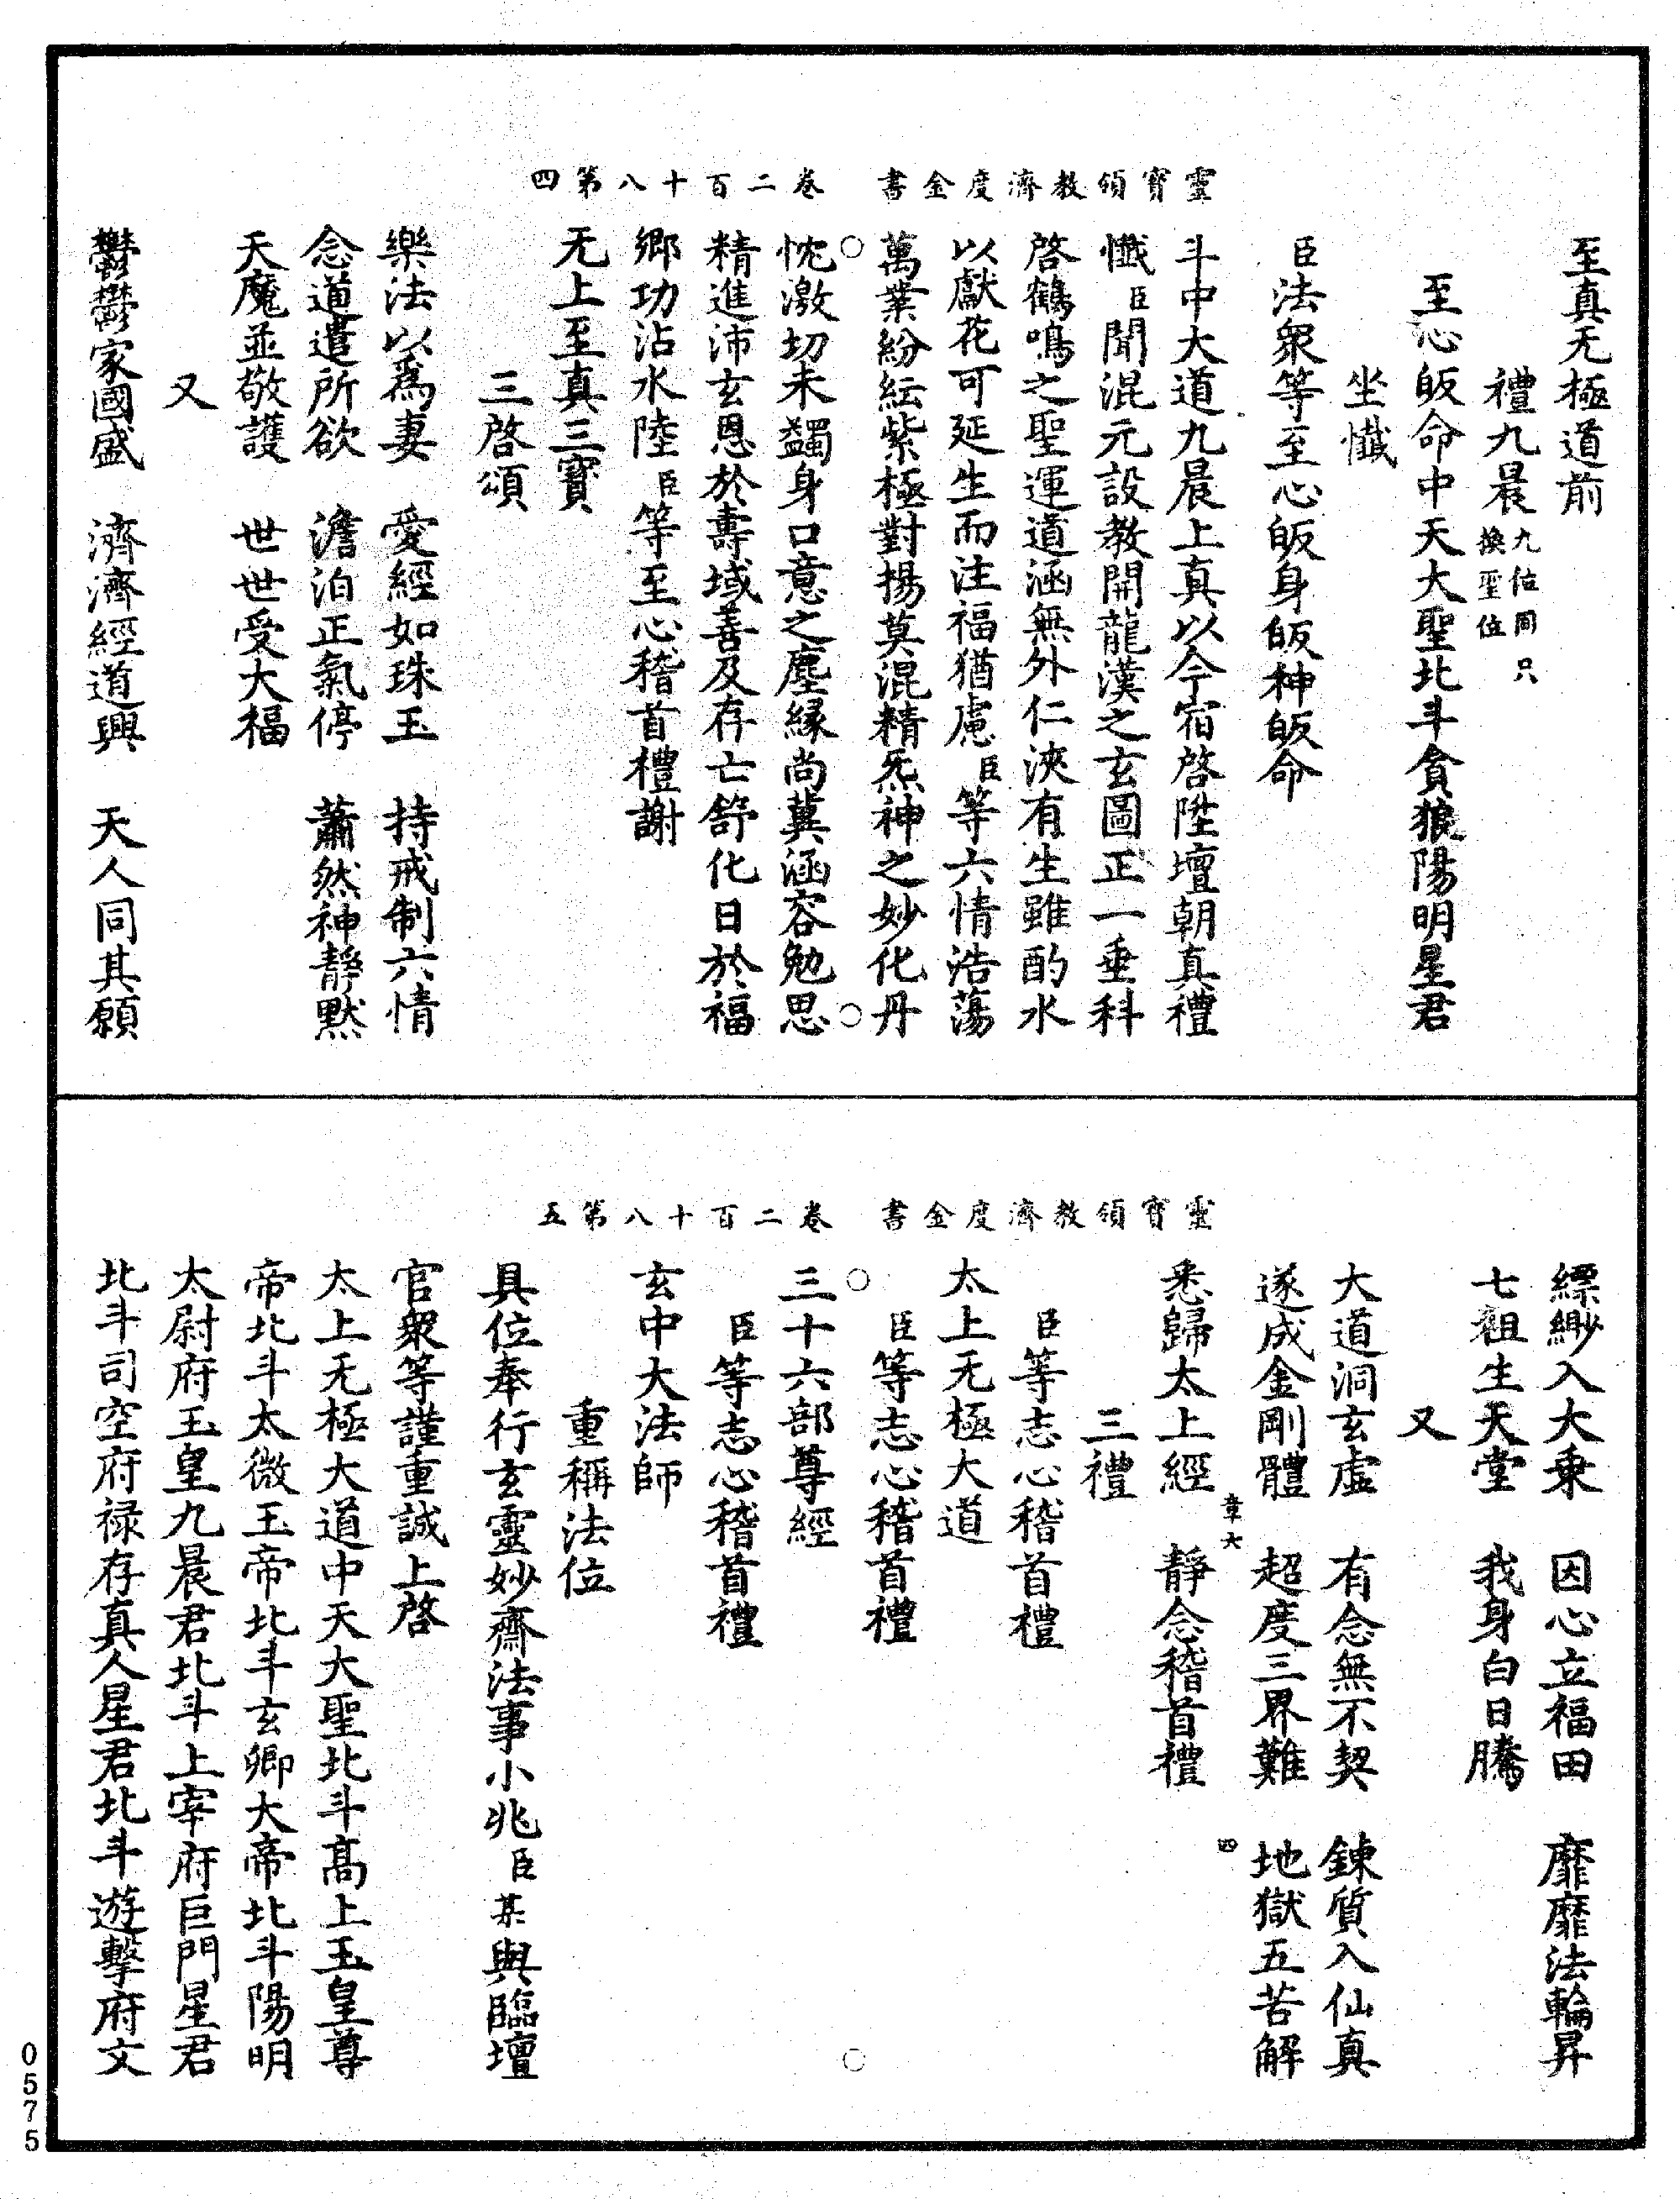 靈寶領教濟度金書　卷二百十八第四
至真无極道前
禮九晨九位同只換聖位
至心皈命中天大聖北斗貪狼陽明星君
坐懺
臣法衆等至心皈身皈神皈命
斗中大道九晨上真以今宿啓陞壇朝真禮
懺臣聞混元設教開龍漢之玄圖正一垂科
啓鶴鳴之聖運道涵無外仁浹有生雖酌水
以獻花可延生而注福猶慮臣等六情浩蕩
萬業紛紜紫極對揚莫混精炁神之妙化丹
忱激切未蠲身口意之塵緣尚冀涵容勉思
精進沛玄恩於壽域善及存亡舒化日於福
鄉功沾水陸臣等至心稽首禮謝
无上至真三寶
三啓頌
樂法以爲妻　愛經如珠玉　持戒制六情
念道遣所欲　澹泊正氣停　蕭然神靜默
天魔並敬護　世世受大福
又
鬱鬱家國盛　濟濟經道興　天人同其願
靈寶領教濟度金書　卷二百十八第五
縹緲入大乗　因心立福田　靡靡法輪昇
七祖生天堂　我身白日騰
又
大道洞玄虛　有念無不契　鍊質入仙真
遂成金剛體　超度三界難　地獄五苦解
章六　四
悉歸太上經　靜念稽首禮
三禮
臣等志心稽首禮
太上无極大道
臣等志心稽首禮
三十六部尊經
臣等志心稽首禮
玄中大法師
重稱法位
具位奉行玄靈妙齋法事小兆臣某與臨壇
官衆等謹重誠上啓
太上无極大道中天大聖北斗高上玉皇尊
帝北斗太微玉帝北斗玄卿大帝北斗陽明
太尉府玉皇九晨君北斗上宰府巨門星君
北斗司空府禄存真人星君北斗遊擊府文
0575